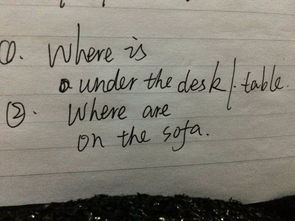 ①. Where is
under the desk / table.
②. Where are
on the sofa.